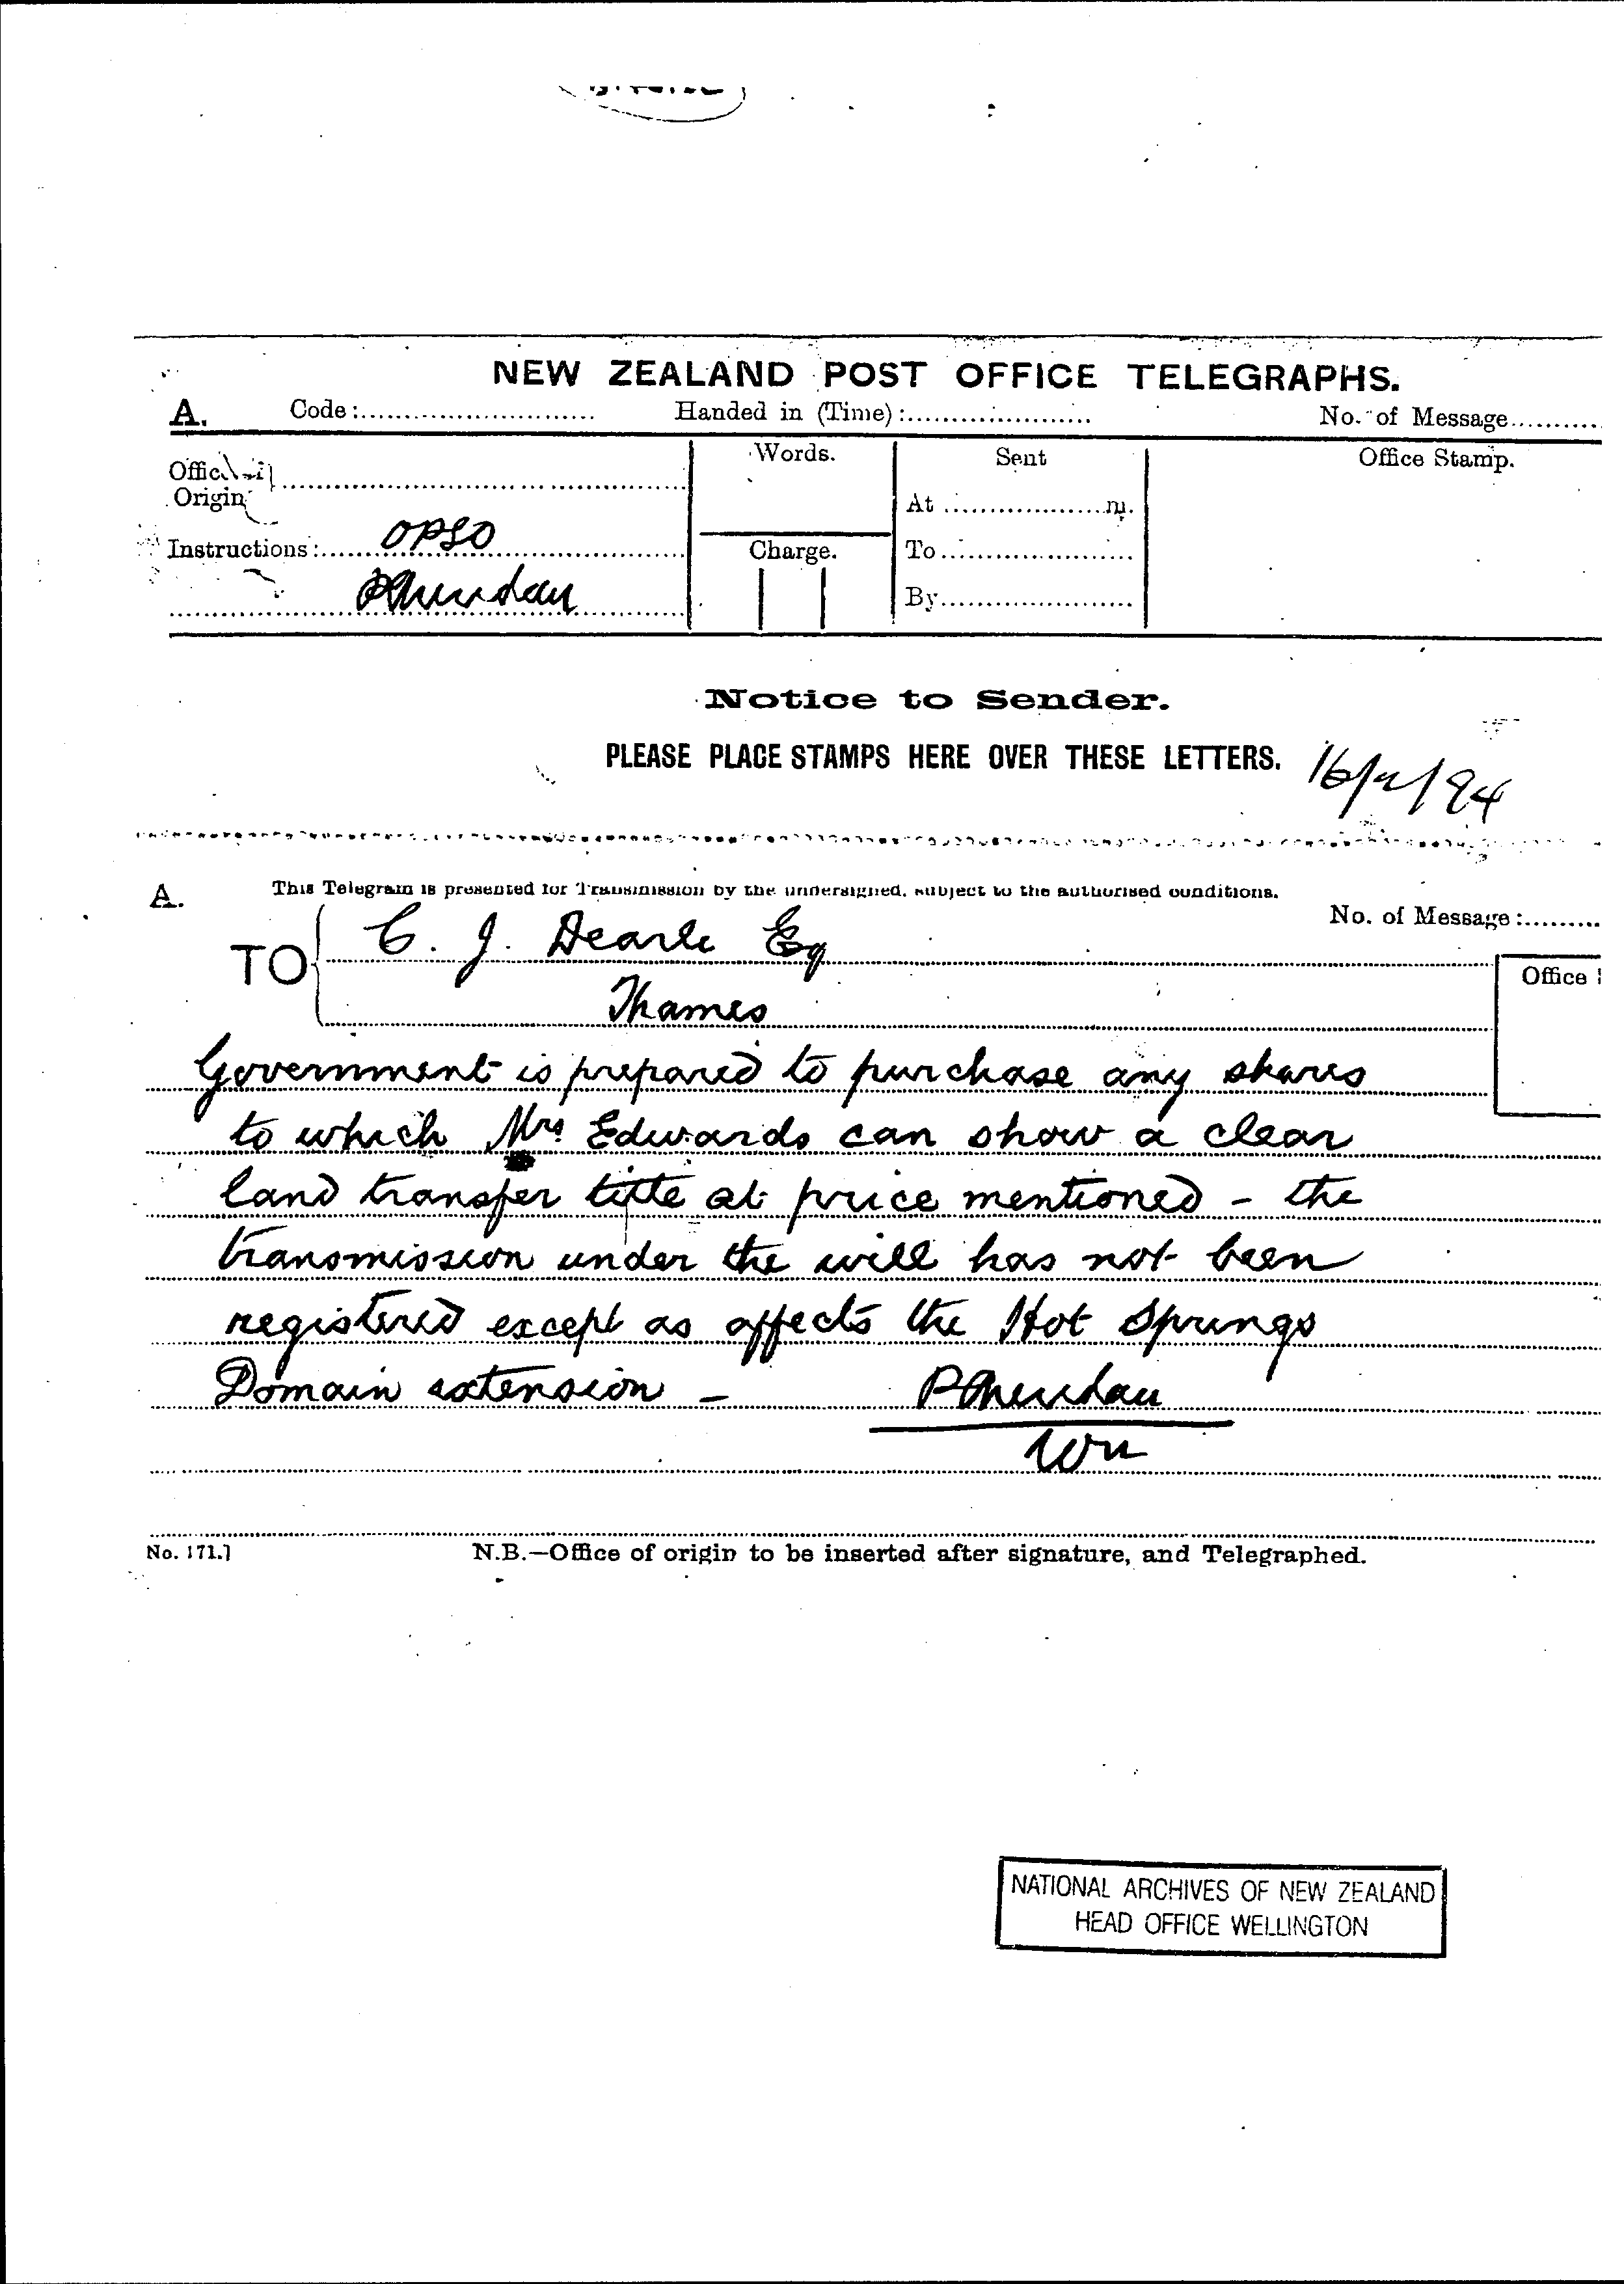 NEW ZEALAND POST OFFICE TELEGRAPHS.
A. Code: Handed in (Time): No. of Message
Words. Sent Office Stamp.
Origin
At m.
Instructions: OPSO
Charge. To
By
Notice to Sender.
PLEASE PLACE STAMPS HERE OVER THESE LETTERS.
16/2/94
A. This Telegram is presented for Transmission by the undersigned, subject to the authorised conditions.
No. of Message:
TO C. J. Dearle Esq
Office
Thames
Government is prepared to purchase any shares
to which Mrs Edwards can show a clear
land transfer title at price mentioned - the
transmission under the will has not been
registered except as affects the Hot Springs
Domain extension - P Sheridan
Wn
No. 171.]
N.B.—Office of origin to be inserted after signature, and Telegraphed.
NATIONAL ARCHIVES OF NEW ZEALAND
HEAD OFFICE WELLINGTON